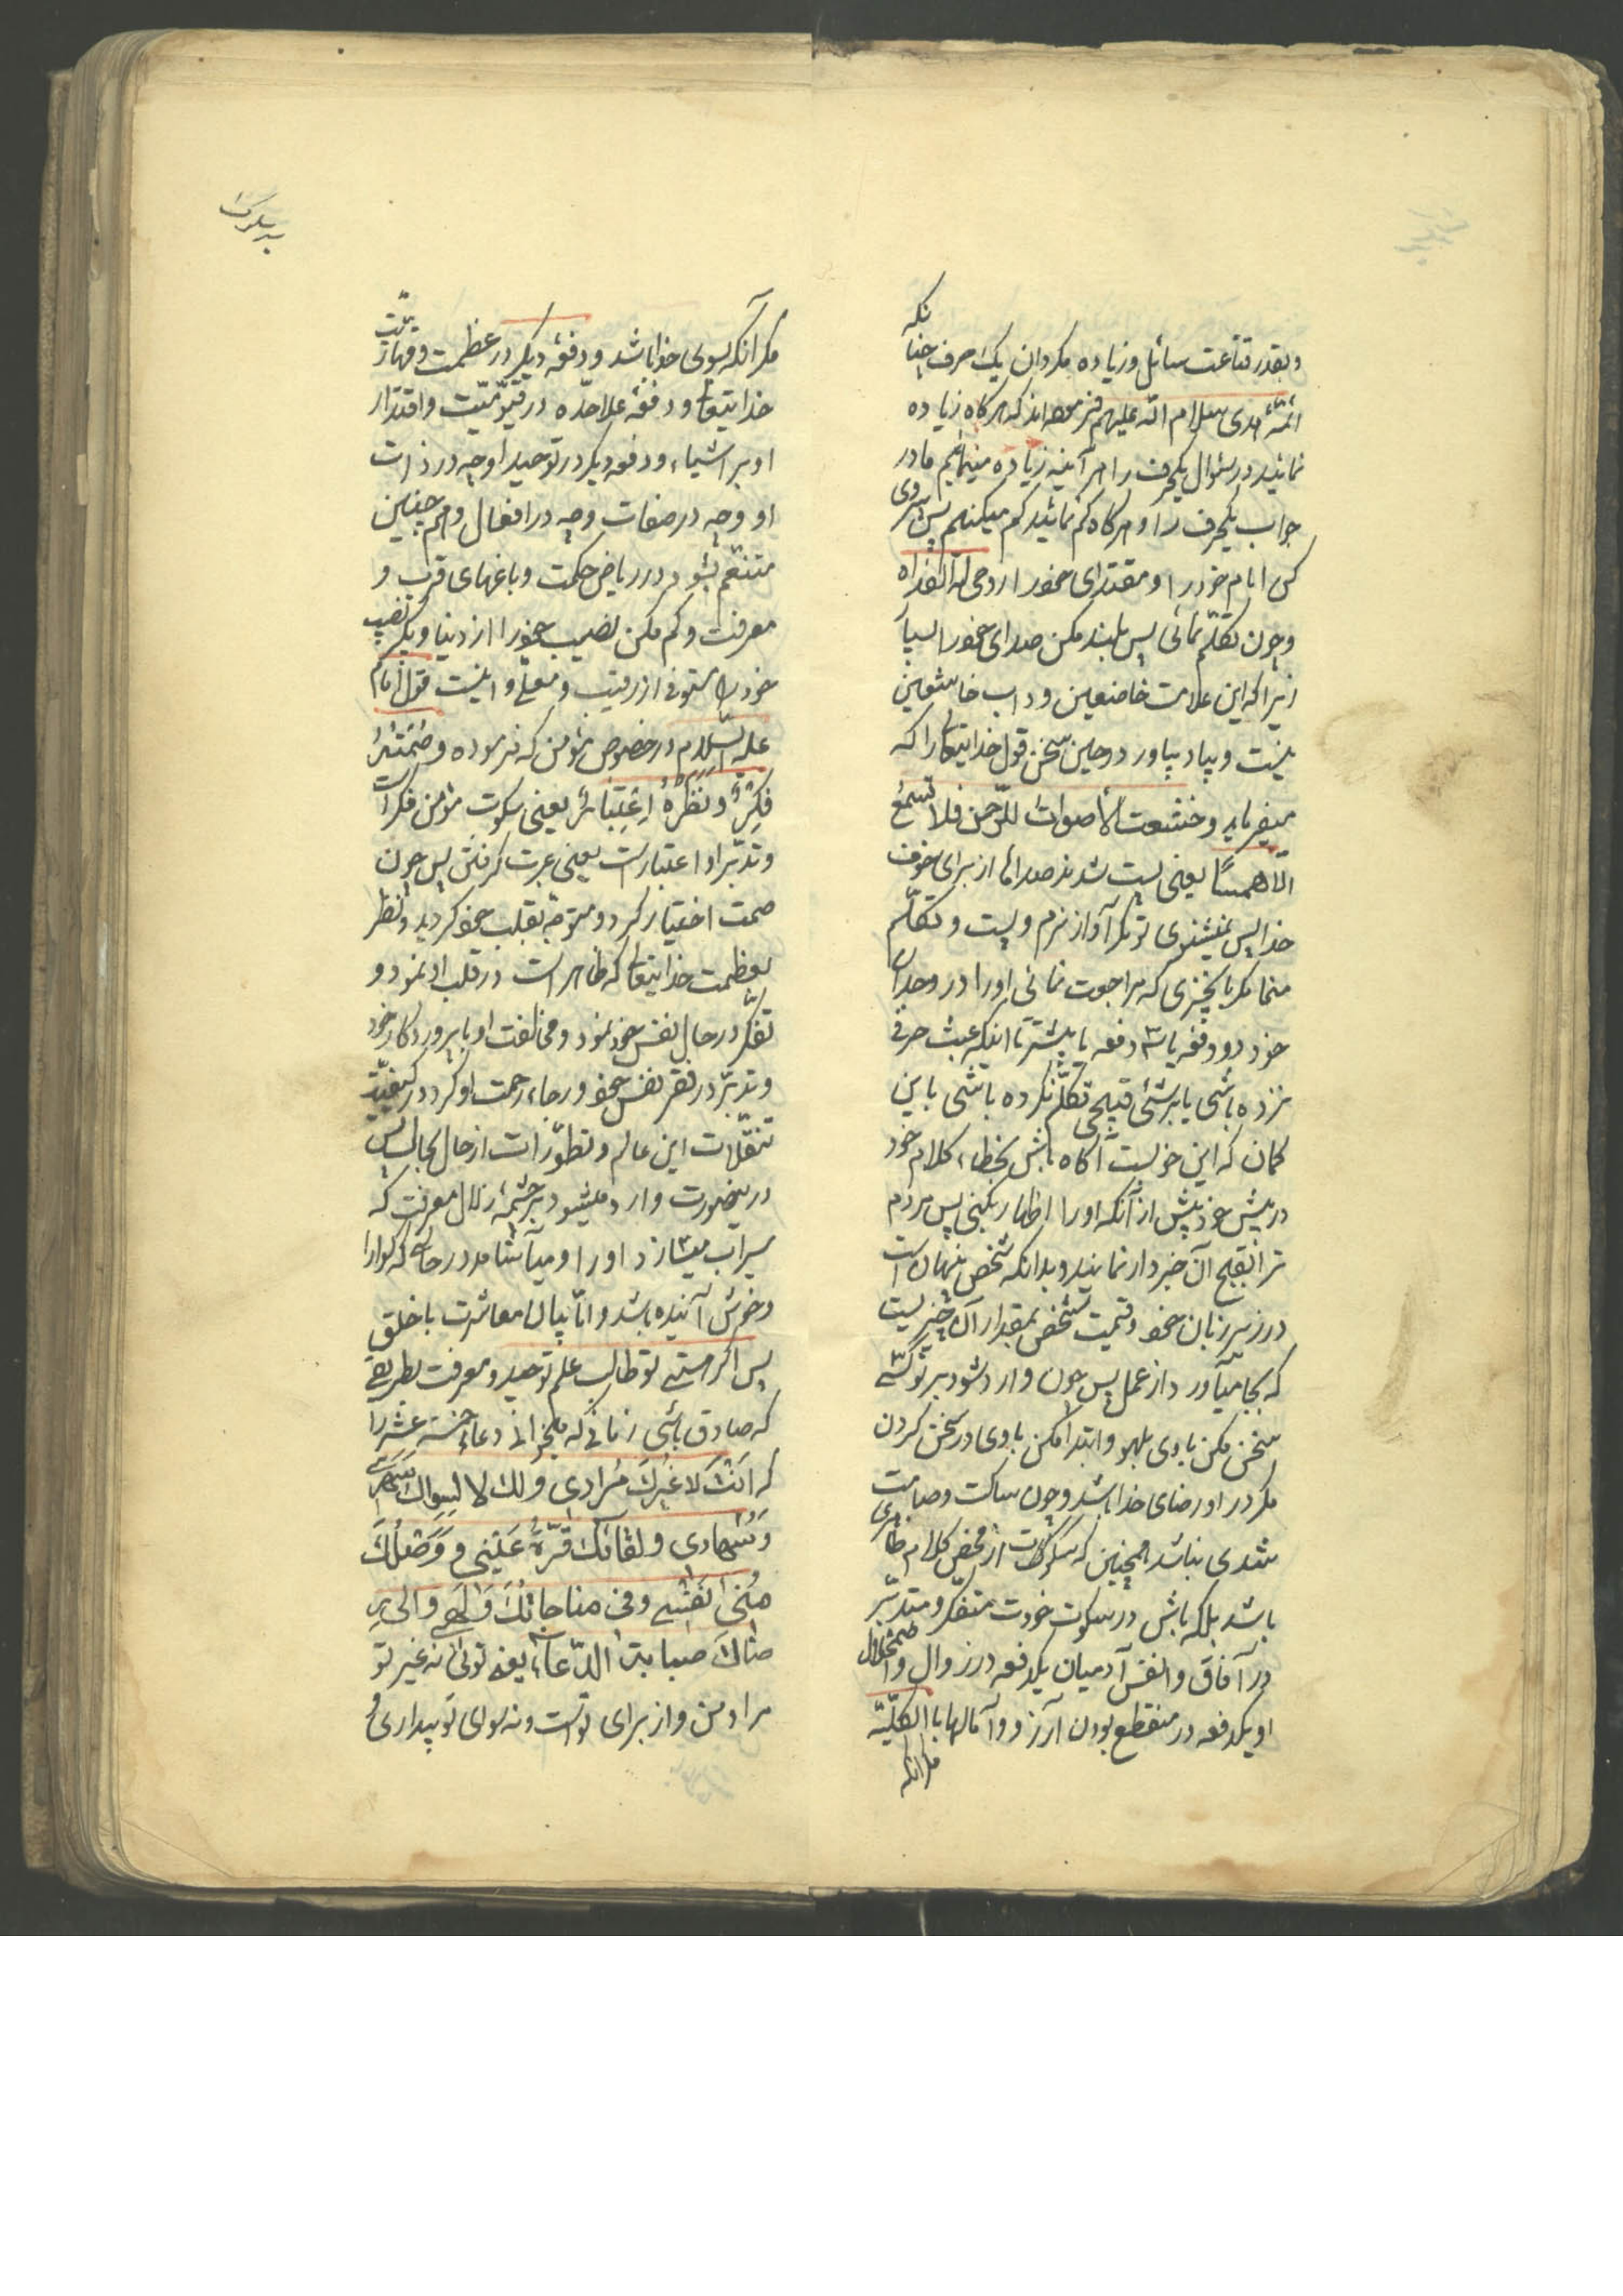 و بقدر قناعت سائل و زیاده مگردان یک حرف چنانکه
ائمّهٔ هدی سلام اللّه علیهم فرموده‌اند که هرگاه زیاده
نمائید در سئوال یکحرف را هر آینه زیاده مینمائیم ما در
جواب یکحرف را و هرگاه کم نمائید کم میکنیم پس پیروی
کن امام خود را و مقتدای خود را روحی له الفداه
و چون تکلّم نمائی پس بلند مکن صدای خود را بسیار
زیرا که این علامت خاضعین و داب خاشعین
نیست و بیاد بیاور در حین سخن قول خدایتعالی را که
میفرماید و خشعت الأصوات للرّحمن فلا تسمع
الّا همسًا یعنی پست شدند صداها از برای خوف
خدا پس نمیشنوی تو مگر آواز نرم و پست و تکلّم
منما مگر با چیزی که مراجعت نمائی او را در وجدان
خود دو دفعه یا ۳ دفعه یا بیشتر تا اینکه عبث حرفی
نزده باشی یا بر شئی قبیحی تکلّم نکرده باشی باین
گمان که این خوبست آگاه باش بخطاء کلام خود
در پیش خود پیش از آنکه او را اظهار بکنی پس مردم
ترا بقبح آن خبردار نمایند و بدانکه شخص پنهان است
در زیر زبان خود و قیمت شخص بمقدار آن چیزیست
که بجا میآورد از عمل پس چون وارد شود بر تو کسی
سخن مکن با وی بلهو و ابتدا مکن با وی در سخن کردن
مگر در او رضای خدا باشد و چون ساکت و صامت
شدی نباشد همچنین که سکوتت از محض کلام ظاهری
باشد بلکه باش در سکوت خودت متفکّر و متدبّر
در آفاق و انفس آدمیان یکدفعه در زوال و اضمحلال
او یکدفعه در منقطع بودن آرزو و آمالها بالکلّیّه
مگر آنکه
بر سلوک
مگر آنکه بسوی خدا باشد و دفعهٔ دیگر در عظمت و قهّاریّت
خدایتعالی و دفعهٔ علاحدّه در قیّومیّت و اقتدار
او بر اشیاء و دفعه دیگر در توحید او چه در ذات
او و چه در صفات و چه در افعال و هم چنین
متنعّم بشو در ریاض حکمت و باغهای قرب و
معرفت و کم مکن نصیب خود را از دنیا و بگیر نصیب
خود را مستوفی از رقیب و معلّی و اینست قول امام
علیه السّلام در خصوص مؤمن که فرموده و صَمتُهُ
فِکرَةٌ و نَظَرُهُ اِعتِبَارٌ یعنی سکوت مؤمن فکر است
و تدبّر او اعتبار است یعنی عبرت گرفتن پس چون
صمت اختیار کرد و متوجّه بقلب خود گردید و نظر
بعظمت خدایتعالی که ظاهر است در قلب او نمود و
تفکّر در حال نفس خود نمود و مخالفت او با پروردگار خود
و تدبّر در فقر نفس خود و رجاء رحمت او کرد در کیفیّت
تنقّلات این عالم و تطوّرات از حال بحال پس
در اینصورت وارد میشود بر چشمهٔ زلال معرفت که
سیراب میسازد او را و میآشامد در حالتی که گوارا
و خوش آینده باشد و امّا بیان معاشرت با خلق
پس اگر هستی تو طالب علم توحید و معرفت بطریقی
که صادق باشی زمانی که میخوانی دعاء خمسه عشر را
که اَنتَ لا غَیرُكَ مُرادی و لك لا لِسِواكَ سَهَری
وَ سُهادی و لقائك قُرّةُ عَینی و وَصلُكَ
مُنی نَفسی و فی مناجاتك وَلَهی و الی رِ
ضاك صبابتی الدّعاء یعنی توئی نه غیر تو
مراد من و از برای تو است و نه سوای تو بیداری و